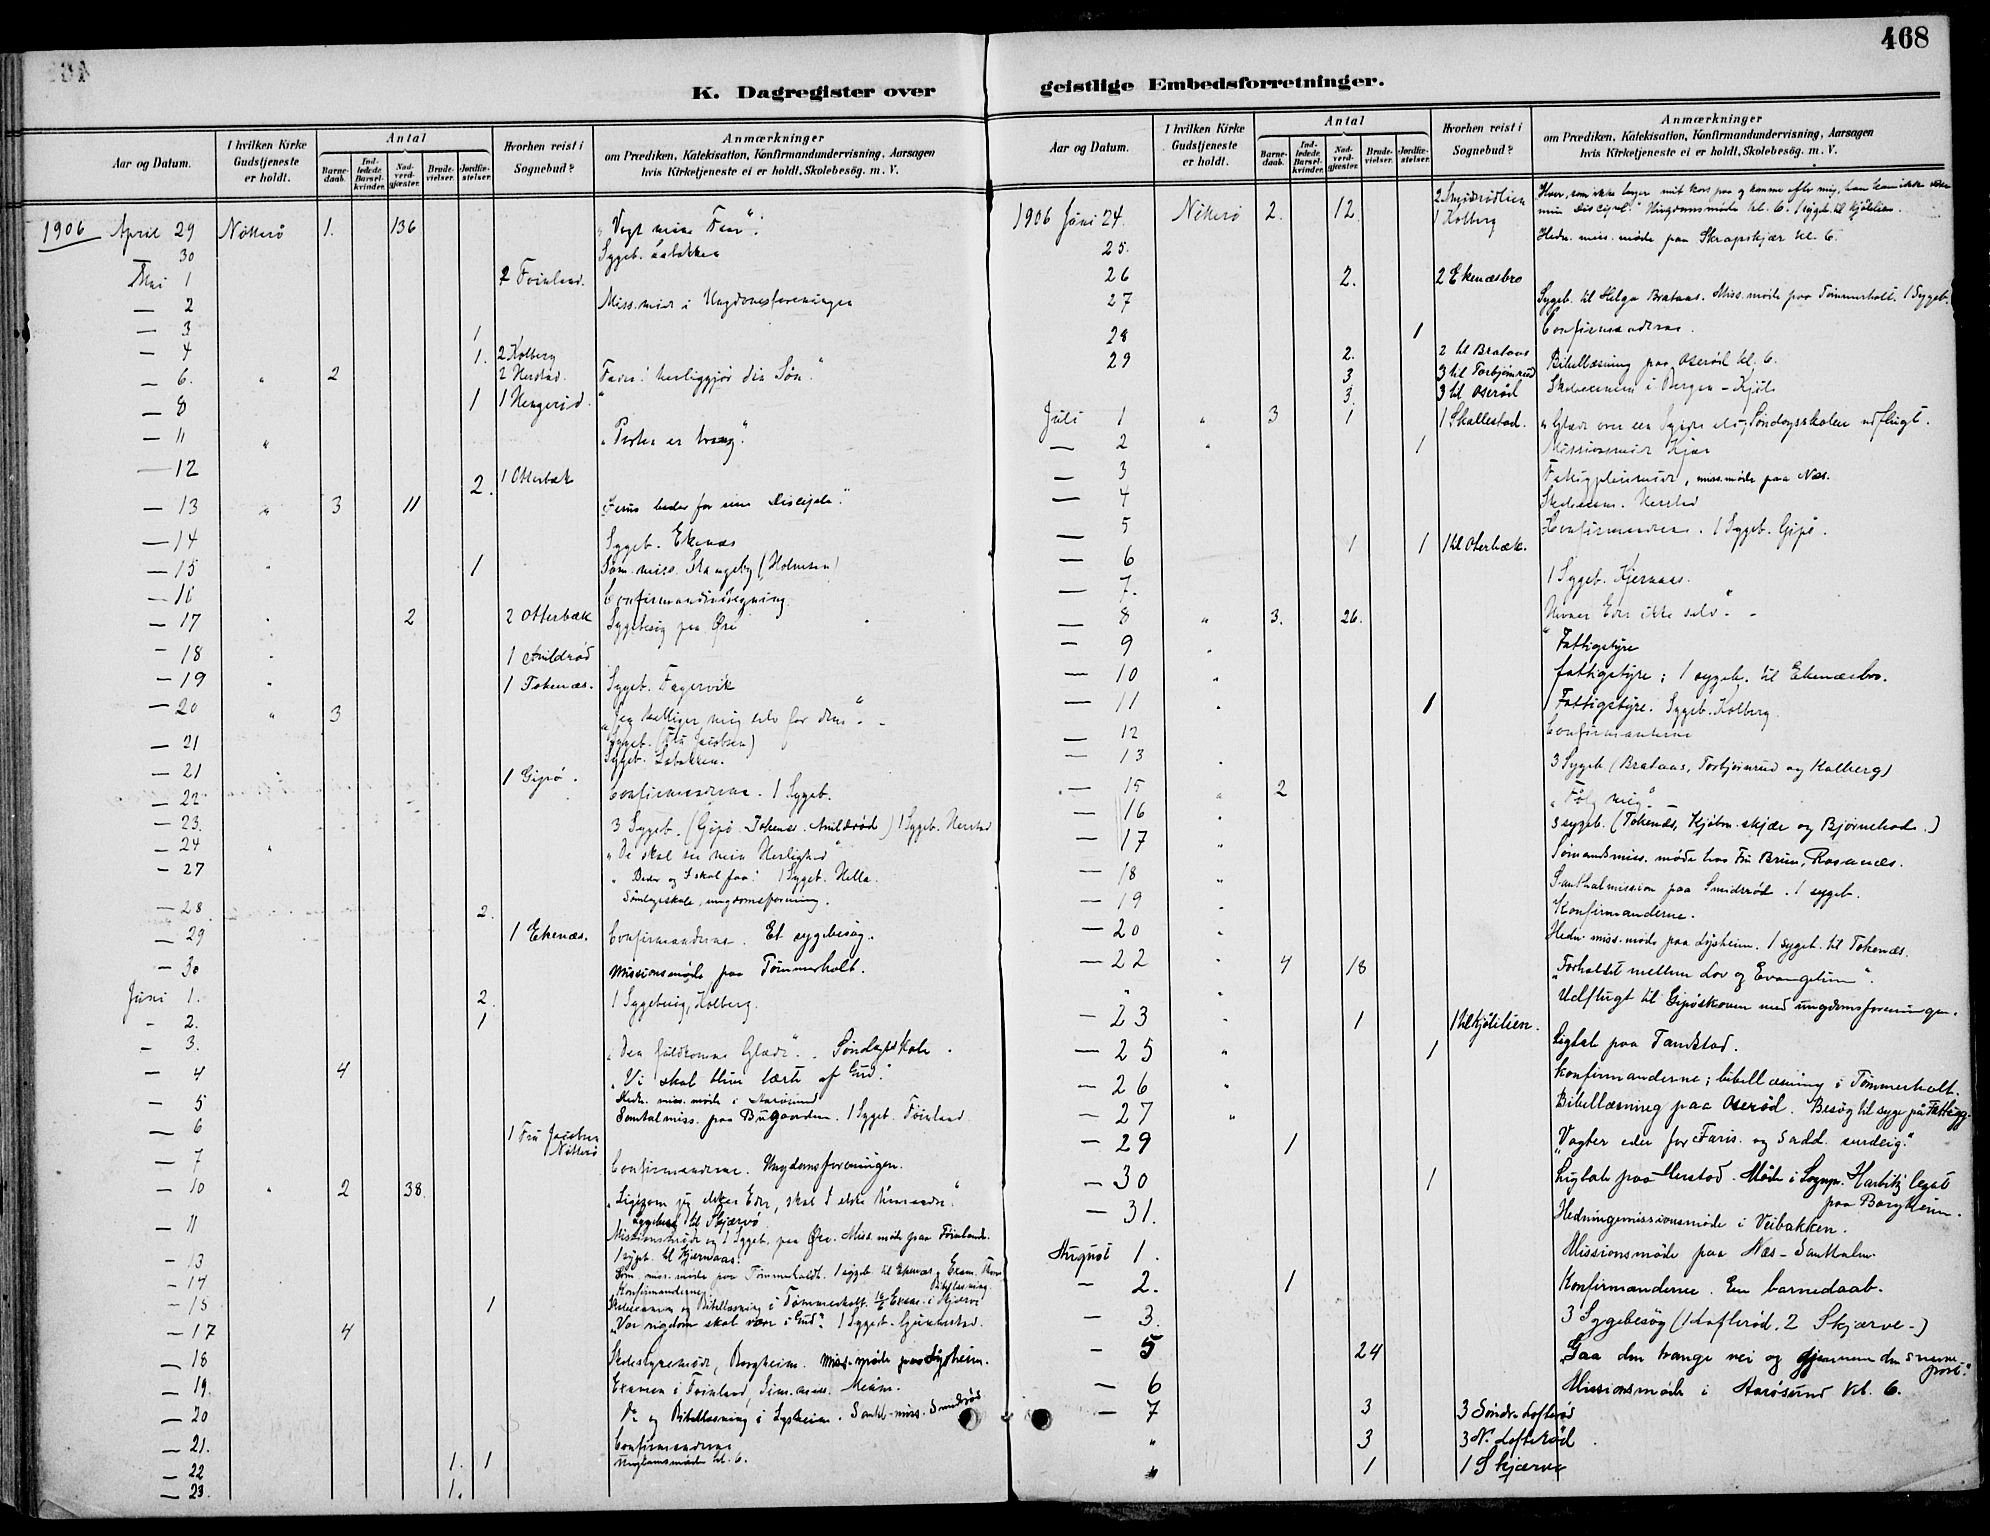 468
K. Dagregister over geistlige Embedsforretninger.
Aar og Datum.
I hvilken Kirke Gudstjeneste er holdt.
Antal
Barne-daab.
Ind-ledede Barsel-kvinder.
Nad-verd-gjæster.
Brude-vielser.
Jordfæ-stelser.
Hvorhen reist i Sognebud?
Anmærkninger
om Prædiken, Katekisation, Konfirmandundervisning, Aarsagen
hvis Kirketjeneste ei er holdt, Skolebesøg. m. V.
1906 April 29 Nøtterø 1. 136
30 Sygeb.
Mai 1 2 Føinland.
— 2 Miss.møde i Ungdomsforeningen
— 3 1
— 4 1. 2 Holberg
— 6. " 2 2 Herstad. Fader! herliggjør din Søn."
— 8 1 1 Hengerød.
— 11 " "Porten er trang".
— 12 2. 1 Otterbæk
— 13 " 3 11 Jesus beder for sine Disciple."
— 14 Sygeb. Ekenæs
— 15 1 Søm. miss. Stangeby (Holmsen)
— 16
— 17 2 2 Otterbæk Sygebesøg paa Øre
— 18 1 Arildrød
— 19 1 Tokenæs. Sygeb. Fagervik
— 20 " 3 "Jeg helliger mig selv for dem". -
— 21 Sygeb. (Fru Jacobsen)
Sygeb. Labakken.
— 21 1 Gipø.
— 22 Confirmanderne. 1 Sygeb.
— 23. 3 Sygeb. (Gipø. Tokenæs. Arildrød) 1 Sygeb. Herstad
— 24 " "De skal se min Herlighed"
— 27 " Beder og I skal faa! 1 Sygeb. Hella.
Søndagsskole, ungdomsforening.
— 28 2.
— 29 1 Ekenæs. Confirmanderne. Et sygebesøg.
— 30 Missionsmøde paa Tømmerholt.
Juni 1. 2 1 Sygebesøg, Holberg.
- 2. 1
- 3. "Den fuldkomne Glæde". Søndagsskole.
— 4 4 "Vi skal blive lærte af Gud."
Hedn. miss. møde i Aarøsund
— 5 Santalmiss. paa Bugaarden. 1 Sygeb. Føinland
— 6 1 Fru Jacobsen Nøtterø
— 7 Confirmanderne. Ungdomsforeningen.
— 10 " 2 38 "Ligesom jeg elsker Eder, skal I elske hinanden."
Sygebesøg til Skjærvø
— 11 Missionsmøde og 1 Sygeb. paa Øre. Miss. møde paa Føinland.
— 13 1 sygeb. til Kjærnaas.
Søm. miss. møde paa Tømmerholt. 1 sygeb. til Ekenæs.
— 14 Konfirmanderne. Bibellæsning.
— 15 1 Skoleexamen og Bibellæsning i Tømmerholt.
— 17 4 "Vor rigdom skal være i Gud".
— 18 Skolestyremøde, Borgheim. Miss-møde paa Lysheim.
— 19. Examen i Føinland,
— 20 Do og Bibellæsning i Lysheim. Santal-miss. Smidsrød
— 21. Confirmanderne
— 22 1. 1 Ungdomsmøde kl. 6.
— 23. 1.
Aar og Datum.
I hvilken Kirke Gudstjeneste er holdt.
Antal
Barne-daab.
Ind-ledede Barsel-kvinder.
Nad-verd-gjæster.
Brude-vielser.
Jordfæ-stelser.
Hvorhen reist i Sognebud?
Anmærkninger
om Prædiken, Katekisation, Konfirmandundervisning, Aarsagen
hvis Kirketjeneste ei er holdt, Skolebesøg. m. V.
1906 Juni 24. Nøtterø 2. 12. 1 Holberg Hver, som ikke tager mit kors paa og komme efter mig, han kan ikke være
min Discipel." Ungdomsmøde kl. 6. 1 sygeb. til Kjølelien.
25. Hedn. miss. møde paa Skrapskjær kl. 6.
26 2. 2 Ekenæsbro
27 Sygeb. til Helga Brataas. Miss. møde paa Tømmerholt. 1 Sygeb.
28 1 Confirmanderne.
29 2. 2 til Brataas Bibellæsning paa Oserød kl. 6.
3 3 til Torbjørnrud Skoleexamen i Bergan - Kjøle
3. 3 til Oserød
Juli 1 " 3 1 1 Skallestad. "Glæde over een Synder etc., Søndagsskolen udflugt.
— 2 " 1 Missionsmøde Kjær
— 3 Fattigpleiemøde, miss. møde paa Næs.
— 4 Skoleexam. Herstad
— 5 Confirmanderne. 1 Sygeb. Gipø.
— 6 1 1 1 til Oterbæk.
— 7. 1 Sygeb. Kjernaas.
— 8 " 3. 26. Hevner Eder ikke selv". -
— 9 " Fattigstyre
— 10 " fattigstyre; 1 sygeb. til Ekenæsbro.
— 11 " 1 Fattigstyre. Sygeb. Holberg.
— 12 Confirmanterne
— 13 " 3 Sygeb. (Brataas, Torbjørnrud og Kalberg)
— 15 " 2 "Følg mig".
— 16 3 sygeb. (Tokenæs, Kjøbm. skjær og Bjørnebods.)
— 17 " Sømandsmiss. møde hos Fru Bruun, Rosanæs.
— 18 " Santhalmission paa Smidsrød. 1 sygeb.
— 19 " Konfirmanderne.
— 20 " Hedn. miss. møde paa Lysheim. 1 sygeb. til Tokenæs.
— 22 " 4 18 "Forholdet mellem Lov og Evangelium".
" " Udflugt til Gipøskoven med ungdomsforeningen.
— 23 " 1 1 til Kjølelien.
— 25 " 1 Ligtale paa Tandstad.
— 26 " Konfirmanderne; bibellæsning i Tømmerholt.
— 27 " Bibellæsning paa Oserød. Besøg til syge på Fattigg.
— 29 1 "Vogter eder for Faris. og Sadd. surdeig."
— 30 1 Ligtale paa Herstad. Møde i Sognp. Harbitz legat
paa Borgheim.
— 31. Hedningemissionsmøde i Veibakken.
August 1. Missionsmøde paa Næs -
— 2. 1 Konfirmanderne. En barnedaab.
— 3. 3 Sygebesøg (1 Lofterød. 2 Skjærve-)
- 5 24 "Gaa den trange vei og gjennem den snevre port."
— 6 Missionsmøde i Aarøsund kl. 6.
- 7 3 3 Søndr. Lofterød
" 3 3 N. Lofterød.
" 1 1 Skjærve